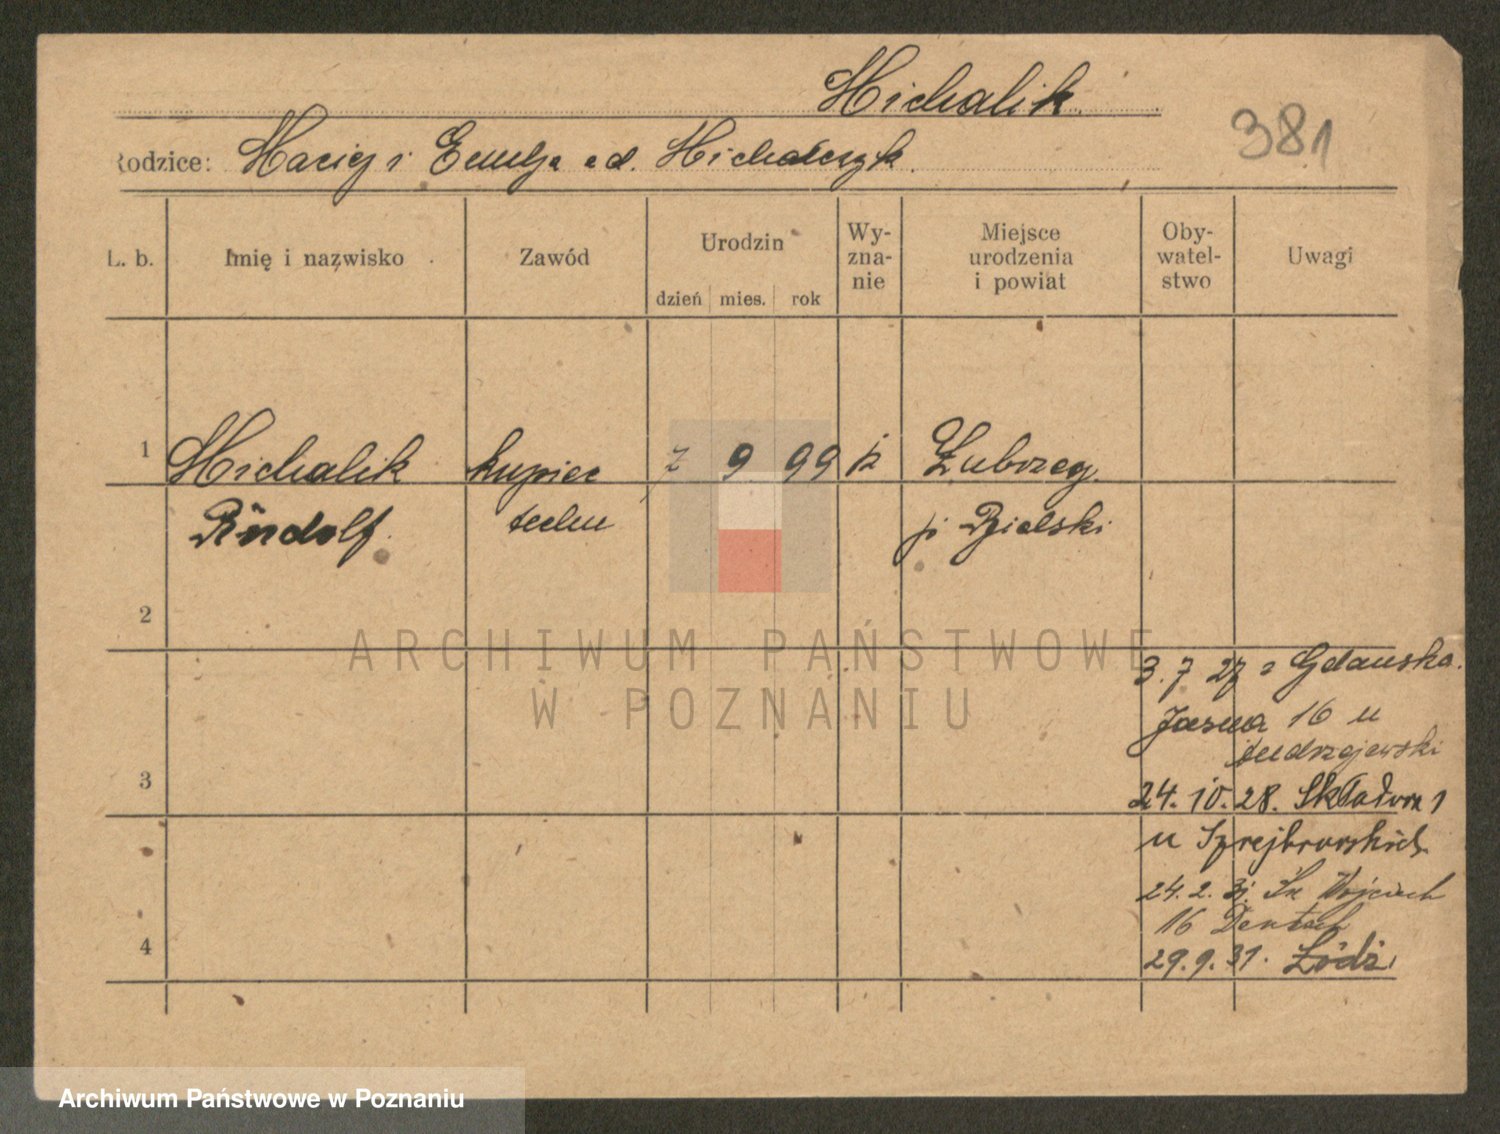 Michalik
381
Rodzice: Maciej i Emilja ad. Michalczyk.
L. b. Imię i nazwisko Zawód Urodzin dzień mies. rok Wy-zna-nie Miejsce urodzenia i powiat Oby-watel-stwo Uwagi
1 Michalik kupiec 2 9 99 k Łubrzeg
Rudolf techn p. Bielski
2
ARCHIWUM PAŃSTWOWE
W POZNANIU
3. 7 27 z Gdańska.
Jasna 16 u
Jendrzejewski
3
24. 10. 28. Składowa 1
u
24. 2. 31. Św Wojciech
16
4
29. 9. 31. Łódź
Archiwum Państwowe w Poznaniu